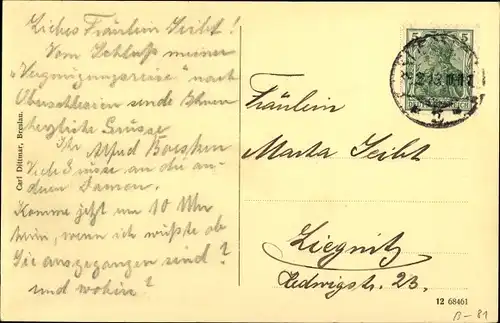 Liebes Fräulein Seibt!
Vom Schluß meiner
„Vergnügungsreise" nach
Oberschlesien sende Ihnen
herzliche Grüsse
Ihr Alfred
Viele Grüsse an die an-
deren Damen.
Komme jetzt um 10 Uhr
heim, wenn ich wüßte ob
Sie ausgegangen sind?
und wohin?
Carl Dittmar, Breslau.
5 5
Fräulein
Marta Seibt
Liegnitz
Hedwigstr. 23.
12 68461
B-81